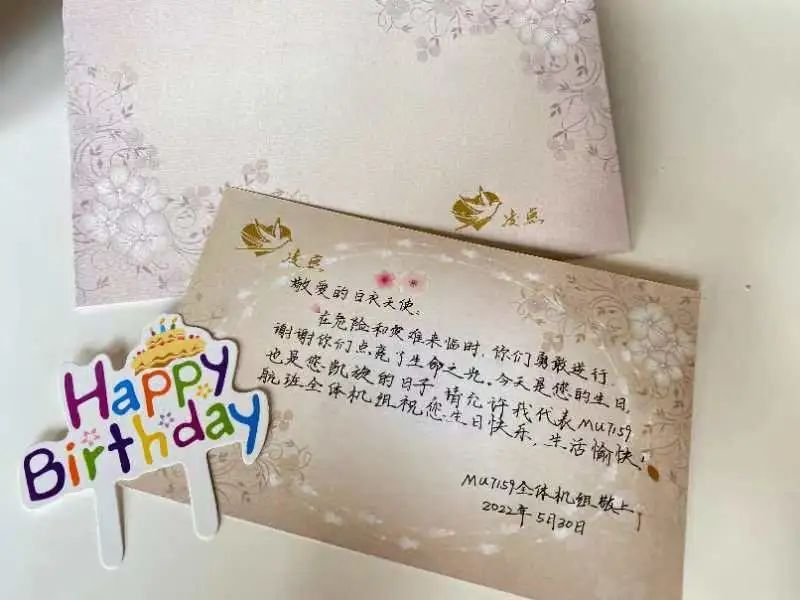 凌燕
凌燕
敬爱的白衣天使：
在危险和灾难来临时，你们勇敢逆行，
谢谢你们点亮了生命之光。今天是您的生日，
也是您凯旋的日子，请允许我代表MU7159
航班全体机组祝您生日快乐，生活愉快！
MU7159全体机组敬上
2022年5月30日
Happy
Birthday